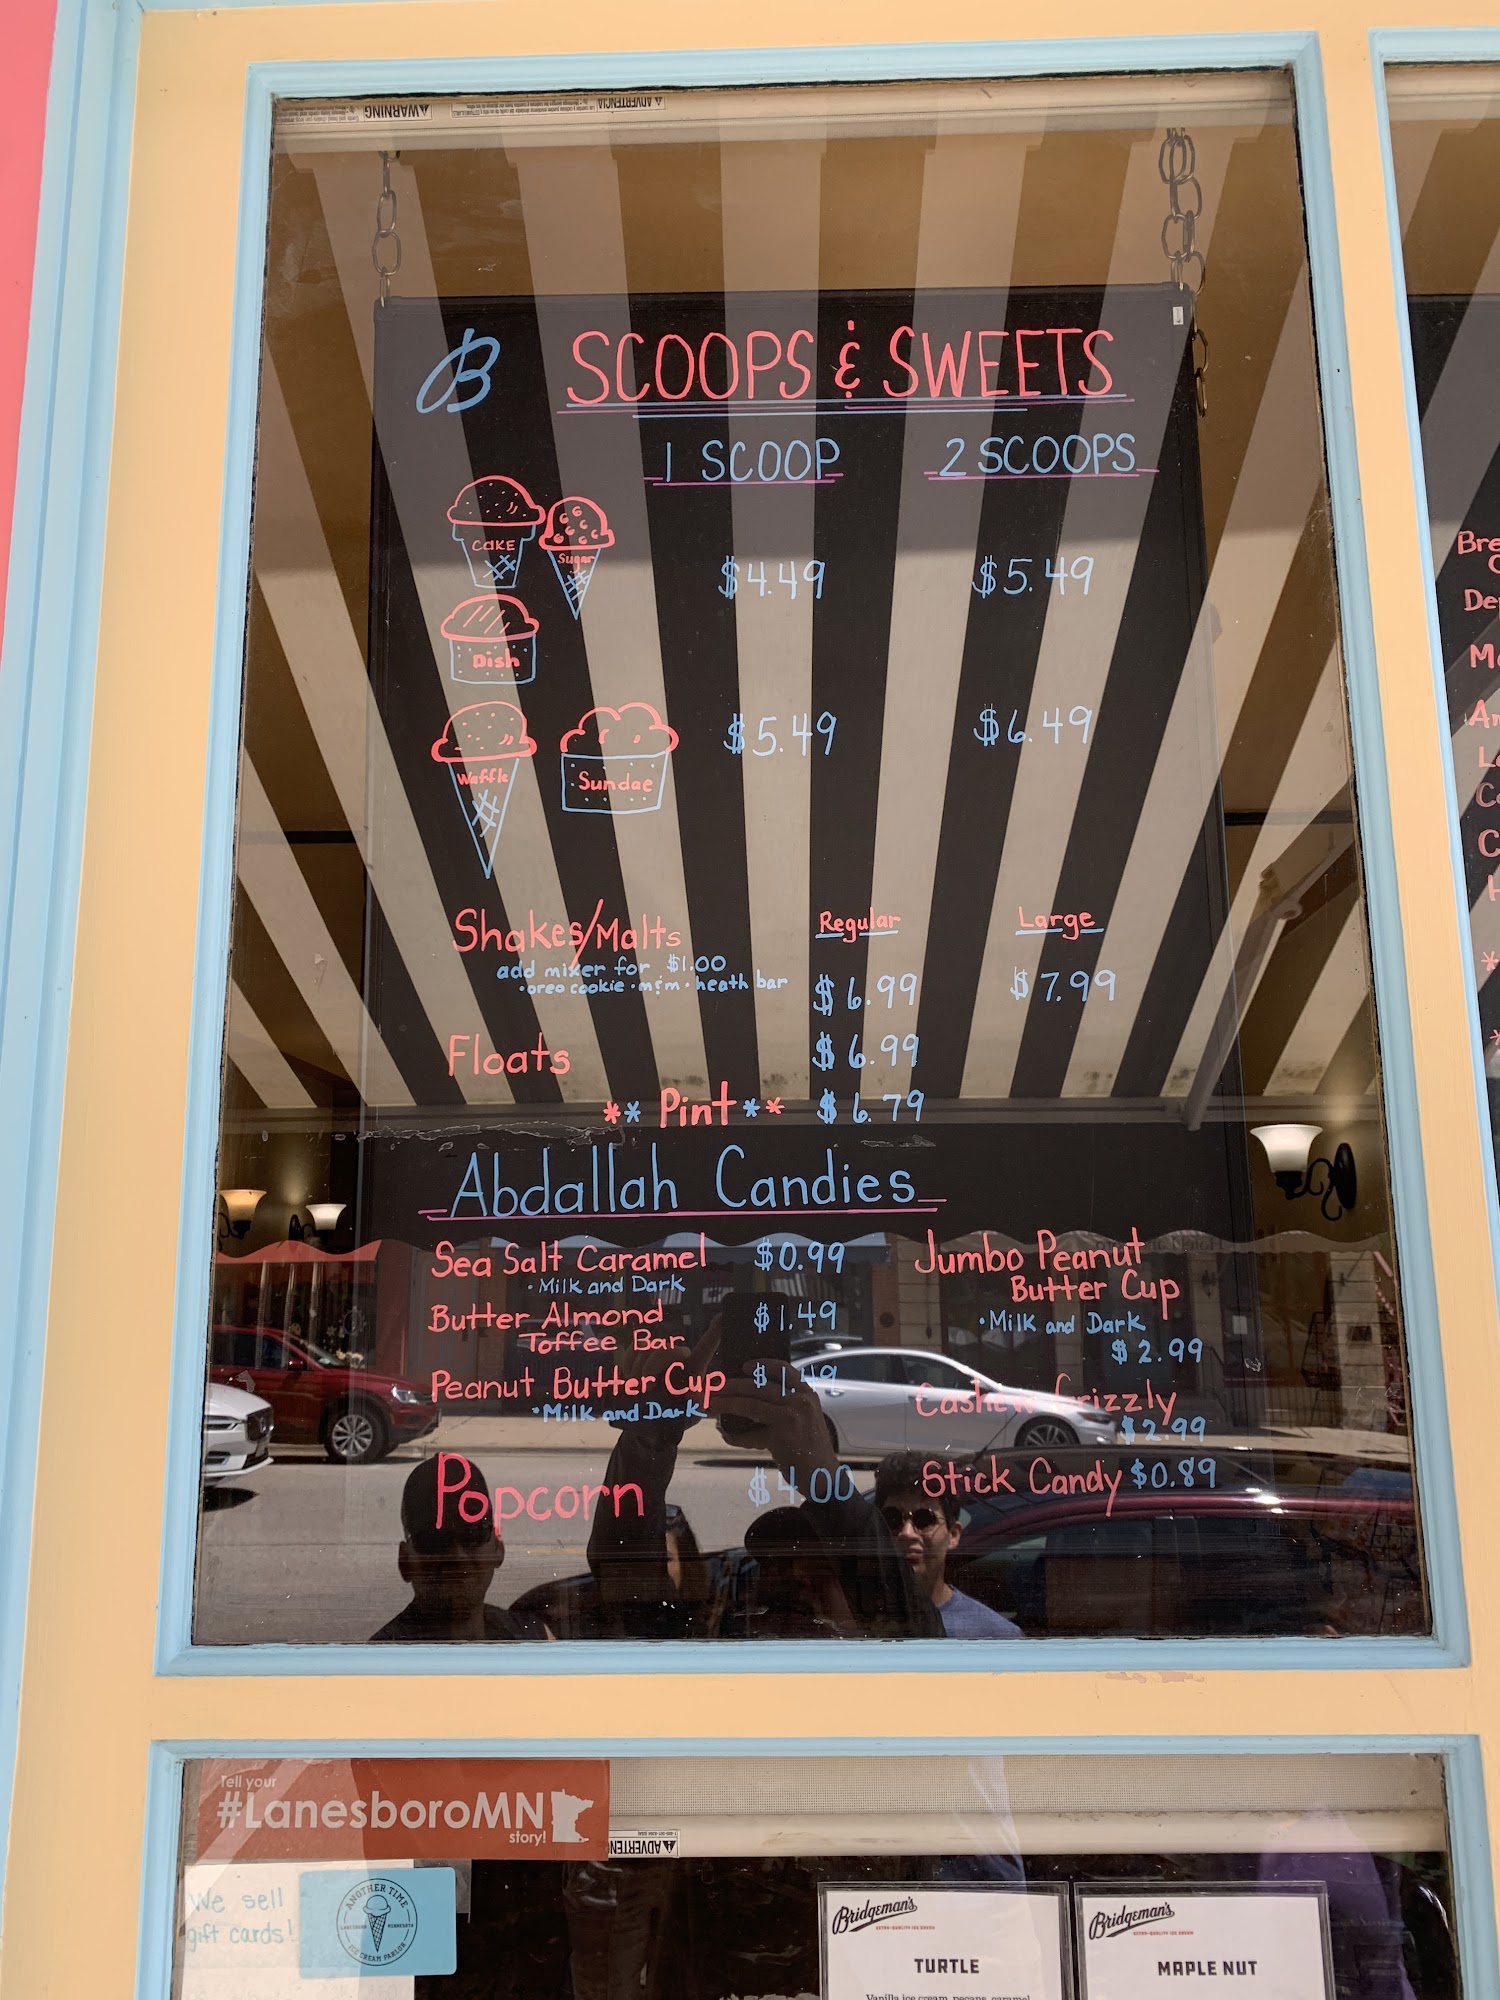 WARNING
ADVERTENCIA
B SCOOPS & SWEETS
1 SCOOP 2 SCOOPS
CAKE
Sugar
$4.49 $5.49
Dish
$5.49 $6.49
Waffle Sundae
Shakes/Malts Regular Large
add mixer for $1.00
•oreo cookie •m&m• heath bar $6.99 $7.99
Floats $6.99
** Pint ** $6.79
Abdallah Candies
Sea Salt Caramel $0.99
•Milk and Dark
Butter Almond $1.49
Toffee Bar
Peanut Butter Cup $1.49
•Milk and Dark
Popcorn $4.00
Jumbo Peanut
Butter Cup
•Milk and Dark
$2.99
Cashew Grizzly
$2.99
Stick Candy $0.89
Bre
De
Tell your
#LanesboroMN
story!
We sell
gift cards!
ANOTHER TIME
LANESBORO MINNESOTA
ICE CREAM PARLOR
Bridgeman's
TURTLE
Vanilla ice cream, pecans, caramel
Bridgeman's
MAPLE NUT